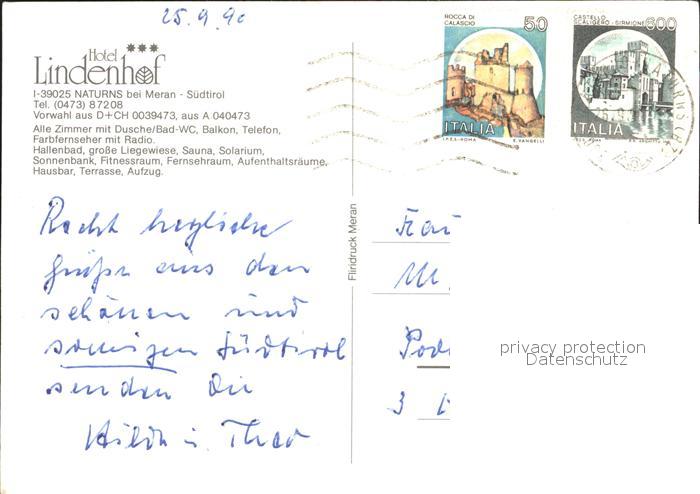 25.9.90
ROCCA DI CALASCIO 50
ITALIA
I.P.Z.S.-ROMA E. VANGELLI
CASTELLO SCALIGERO-SIRMIONE 600
ITALIA
I.P.Z.S.-ROMA
Hotel ***
Lindenhof
I-39025 NATURNS bei Meran - Südtirol
Tel. (0473) 87208
Vorwahl aus D+CH 0039473, aus A 040473
Alle Zimmer mit Dusche/Bad-WC, Balkon, Telefon,
Farbfernseher mit Radio.
Hallenbad, große Liegewiese, Sauna, Solarium,
Sonnenbank, Fitnessraum, Fernsehraum, Aufenthaltsräume,
Hausbar, Terrasse, Aufzug.
Fliridruck Meran
Recht herzliche
Grüße aus dem
schönen und
sonnigen Südtirol
senden Dir
Hilde u. Theo
Frau
M
3
privacy protection
Datenschutz